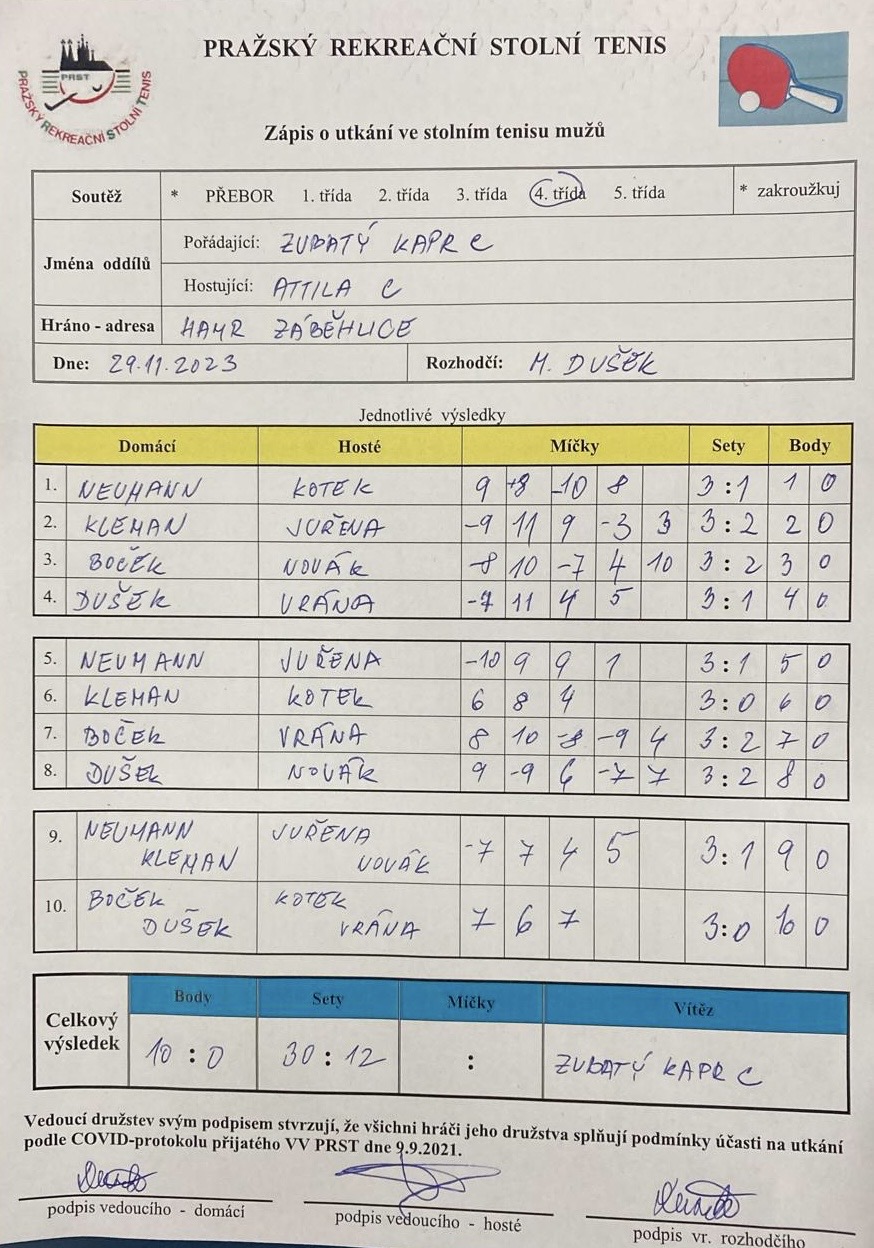 PRAŽSKÝ REKREAČNÍ STOLNÍ TENIS
PRST
PRAŽSKÝ REKREAČNÍ STOLNÍ TENIS
Zápis o utkání ve stolním tenisu mužů
Soutěž * PŘEBOR 1. třída 2. třída 3. třída 4. třída 5. třída * zakroužkuj
Jména oddílů
Pořádající: ZUBATÝ KAPR C
Hostující: ATTILA C
Hráno - adresa HAMR ZÁBĚHLICE
Dne: 29.11.2023 Rozhodčí: M. DUŠEK
Jednotlivé výsledky
Domácí Hosté Míčky Sety Body
1. NEUMANN KOTEK 9 +8 -10 8 3:1 1 0
2. KLEMAN JUŘENA -9 11 9 -3 3 3:2 2 0
3. BOČEK NOVÁK -8 10 -7 4 10 3:2 3 0
4. DUŠEK VRÁNA -7 11 4 5 3:1 4 0
5. NEUMANN JUŘENA -10 9 9 1 3:1 5 0
6. KLEMAN KOTEK 6 8 4 3:0 6 0
7. BOČEK VRÁNA 8 10 -8 -9 4 3:2 7 0
8. DUŠEK NOVÁK 9 -9 6 -7 7 3:2 8 0
9. NEUMANN JUŘENA -7 7 4 5 3:1 9 0
KLEMAN NOVÁK
10. BOČEK KOTEK 7 6 7 3:0 10 0
DUŠEK VRÁNA
Celkový výsledek
Body Sety Míčky Vítěz
10 : 0 30 : 12 : ZUBATÝ KAPR C
Vedoucí družstev svým podpisem stvrzují, že všichni hráči jeho družstva splňují podmínky účasti na utkání
podle COVID-protokolu přijatého VV PRST dne 9.9.2021.
podpis vedoucího - domácí podpis vedoucího - hosté podpis vr. rozhodčího